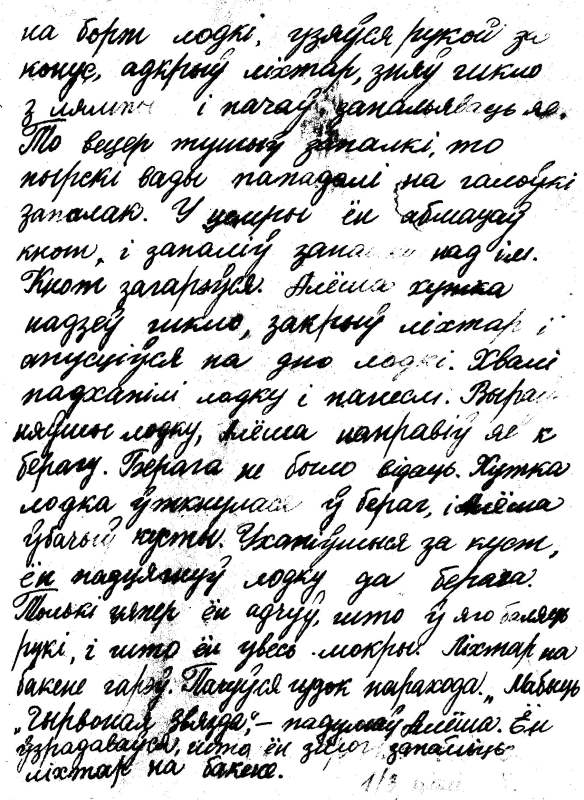 на борт лодкі, узяўся рукой за
конус, адкрыў ліхтар, зняў шкло
з лямпы і пачаў запальяваць яе.
То вецер тушыў запалкі, то
пырскі вады пападалі на галоўкі
запалак. У цемры ён абмацаў
кнот, і запаліў запалку над ім.
Кнот загарэўся. Алёша хутка
надзеў шкло, закрыў ліхтар і
апусціўся на дно лодкі. Хвалі
падхапілі лодку і панеслі. Выраў
няўшы лодку, Алёша направіў яе к
берагу. Берага не было відаць. Хутка
лодка ўткнулася ў бераг, і Алёша
ўбачыў кусты. Ухапіўшыся за куст,
ён падцягнуў лодку да берага.
Толькі цяпер ён адчуў, што ў яго баляць
рукі, і што ён увесь мокры. Ліхтар на
бакене гарэў. Пачуўся гудок парахода. „Мабыць
„Чырвоная звязда", – падумаў Алёша. Ён
ўзрадаваўся, што ён змог запаліць
ліхтар на бакене.
1/3